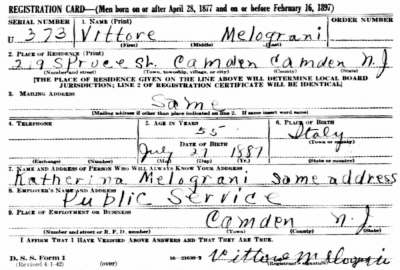 REGISTRATION CARD—(Men born on or after April 28, 1877 and on or before February 16, 1897)
SERIAL NUMBER 1. NAME (Print) ORDER NUMBER
U 373 Vittore Melograni
(First) (Middle) (Last)
2. PLACE OF RESIDENCE (Print)
219 Spruce St. Camden Camden N.J
(Number and street) (Town, township, village, or city) (County) (State)
[THE PLACE OF RESIDENCE GIVEN ON THE LINE ABOVE WILL DETERMINE LOCAL BOARD
JURISDICTION; LINE 2 OF REGISTRATION CERTIFICATE WILL BE IDENTICAL]
3. MAILING ADDRESS
Same
(Mailing address if other than place indicated on line 2. If same insert word same)
4. TELEPHONE 5. AGE IN YEARS 6. PLACE OF BIRTH
55 Italy
DATE OF BIRTH (Town or county)
July 27 1887
(Exchange) (Number) (Mo.) (Day) (Yr.) (State or country)
7. NAME AND ADDRESS OF PERSON WHO WILL ALWAYS KNOW YOUR ADDRESS
Katherina Melograni same address
8. EMPLOYER'S NAME AND ADDRESS
Public Service
9. PLACE OF EMPLOYMENT OR BUSINESS
Camden N.J.
(Number and street or R. F. D. number) (Town) (County) (State)
I AFFIRM THAT I HAVE VERIFIED ABOVE ANSWERS AND THAT THEY ARE TRUE.
D. S. S. Form 1
(Revised 4-1-42) (over) Vittore Melograni